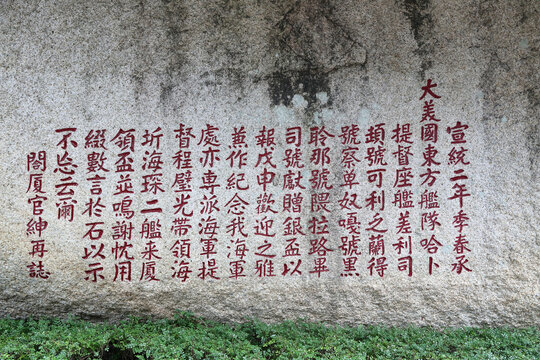 宣統二年季春承
大美國東方艦隊哈卜
提督座艦差利司
頭號可利之蘭得
號察單奴嘎號黑
聆那號隈拉路畢
司號獻贈銀盃以
報戊申歡迎之雅
兼作紀念我海軍
處亦專派海軍提
督程璧光帶領海
圻海琛二艦来厦
領盃並鳴謝忱用
綴數言於石以示
不忘云爾
閤厦官紳再誌